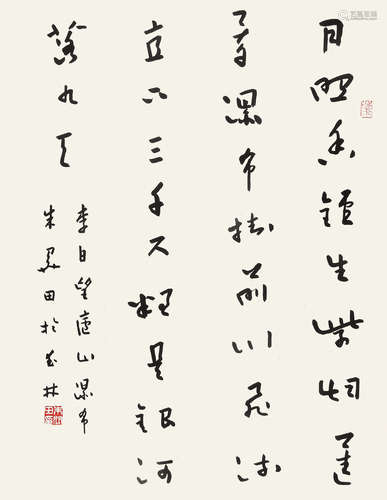 日照香鑪生紫烟遥
看瀑布掛前川飛流
直下三千尺疑是銀河
落九天
李白望廬山瀑布
朱關田於林